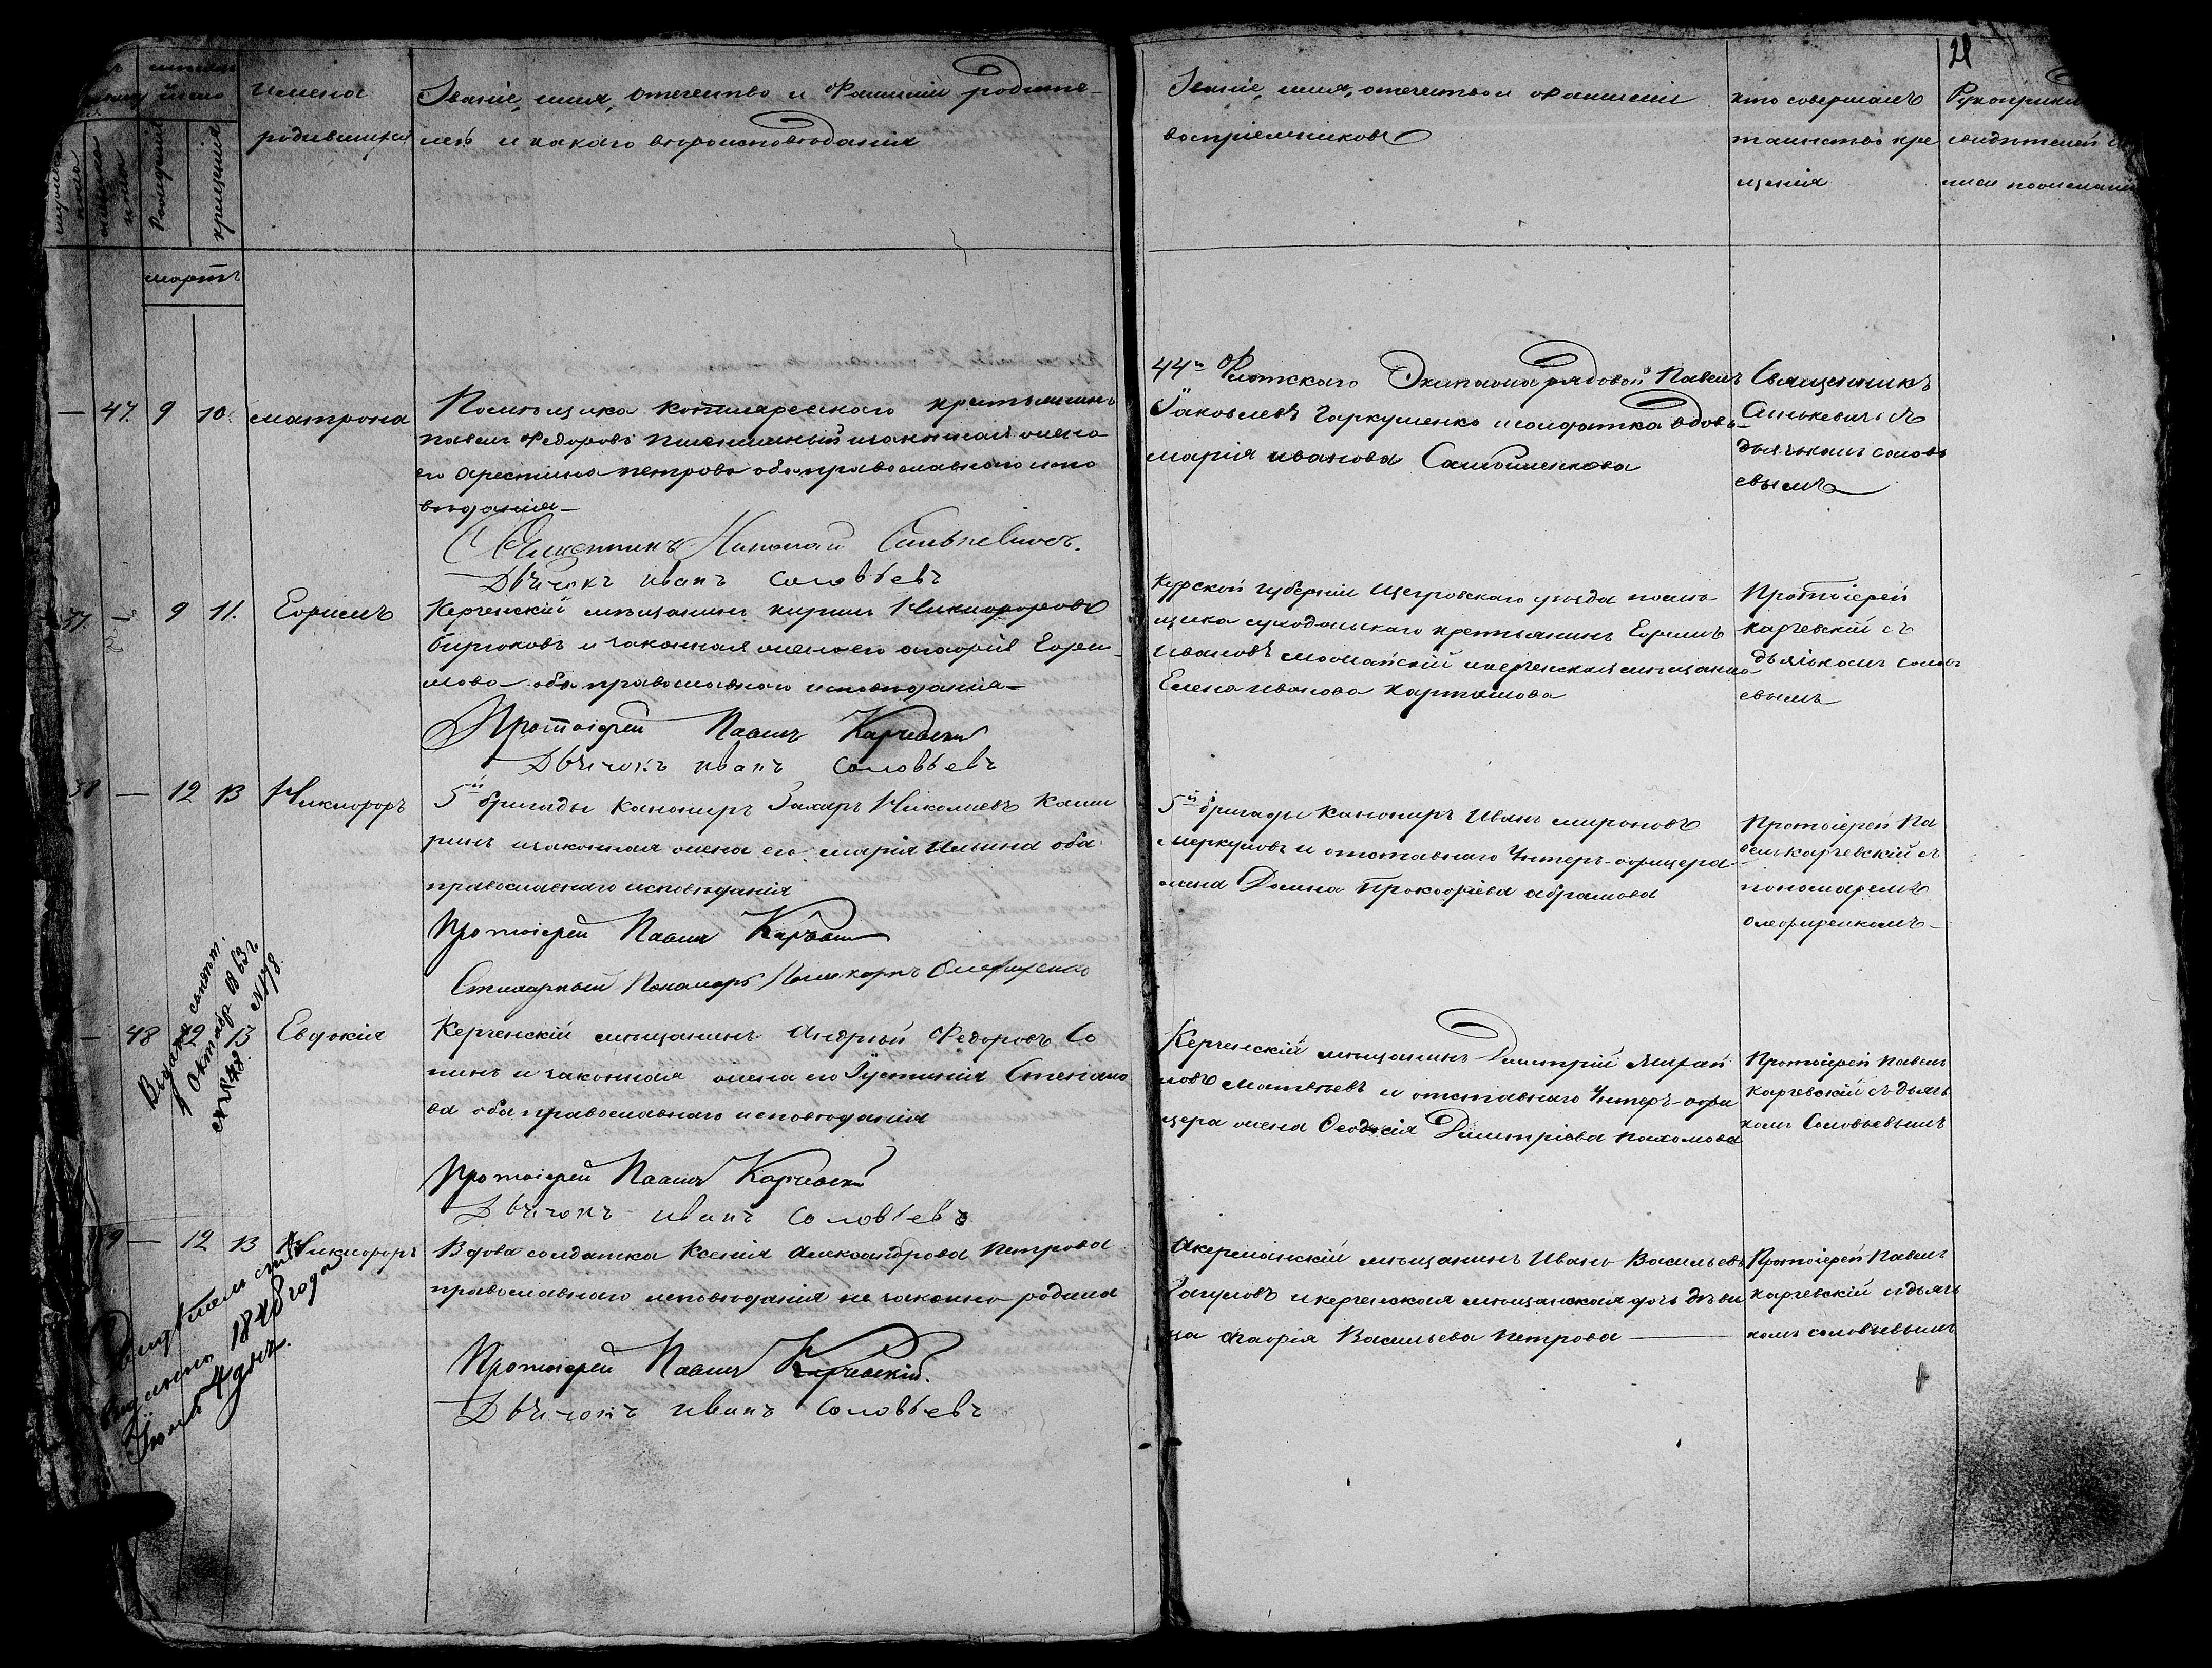 21
имена
родившихся
Званіе, имя, отечество и Фамилія родите-
лей и какаго вѣроисповѣданія
Званіе, имя, отечество и фамилія
воспріемниковъ
кто совершалъ
таинство кре
щенія
Рукоприкла
свидѣтелей
писи по
мужеска пола
женска пола
рожденія
крещенія
мартъ
— 47. 9 10. матрона
Помѣщика Котляревскаго крестьянинъ
павелъ Федоровъ и законная жена
его Христина петрова оба православнаго испо
вѣданія—
Священникъ Николай Синькевичъ.
Дьячокъ иванъ Соловьевъ
44й Флотскаго Экипажа рядовой Павелъ
Яковлевъ Гаркушенко и солдатка вдова
марія иванова
Священникъ
Синькевичъ съ
дьячкомъ соловь
евымъ
37 — 9 11. Ефимъ
Керченскій мѣщанинъ кирилъ Никифоровъ
бирюковъ и законная жена его марфія Ефи-
мова оба православнаго исповѣданія—
Протоіерей Павелъ Карчевскій
Дьячокъ иванъ Соловьевъ
Курской губерніи Щегровскаго уѣзда помѣ
щика суходольскаго крестьянинъ Ефимъ
Ивановъ и керченская мѣщанка
Елена иванова карташова
Протоіерей
карчевскій съ
дьячкомъ солов
евымъ
38 — 12 13 Никифоръ
5й бригады канониръ Захаръ Николаевъ Каши
ринъ и законная жена его марія Ильина оба
православнаго исповѣданія
Протоіерей Павелъ Карчевскій
Пономарь Поликарпъ Олефиренко
5й бригады канониръ Иванъ мироновъ
меркуловъ и отставнаго Унтеръ-офицера
жена Домна Прокофіева абрамова
Протоіерей Па
велъ карчевскій съ
пономаремъ
олефиренкомъ—
— 48 12 13 Евдокія
Керченскій мѣщанинъ Андрей Федоровъ Со
пинъ и законная жена его Іустинія Степано
ва оба православнаго исповѣданія
Протоіерей Павелъ Карчевскій
Дьячокъ иванъ Соловьевъ
Керченскій мѣщанинъ Дмитрій Мирай
ловъ Матвѣевъ и отставнаго Унтеръ-офи
цера жена Феодосія Дмитріева пахомова
Протоіерей павелъ
карчевскій съ дьяч
комъ Соловьевымъ
Выдана
1 Октябр. 1863 г.
№ 48. №178.
39 — 12 13 Никифоръ
Вдова солдатка Ксенія Александрова Петрова
православнаго исповѣданія не законно родила
Протоіерей Павелъ Карчевскій.
Дьячокъ иванъ Соловьевъ
Акерманскій мѣщанинъ Иванъ Васильевъ
Загуловъ и керченская мѣщанская дочь дѣви
ца марія Васильева петрова
Протоіерей Павелъ
карчевскій и дьяч
комъ соловьевымъ
Свидѣтельство
выдано 1848 года
Іюня 4 дня.